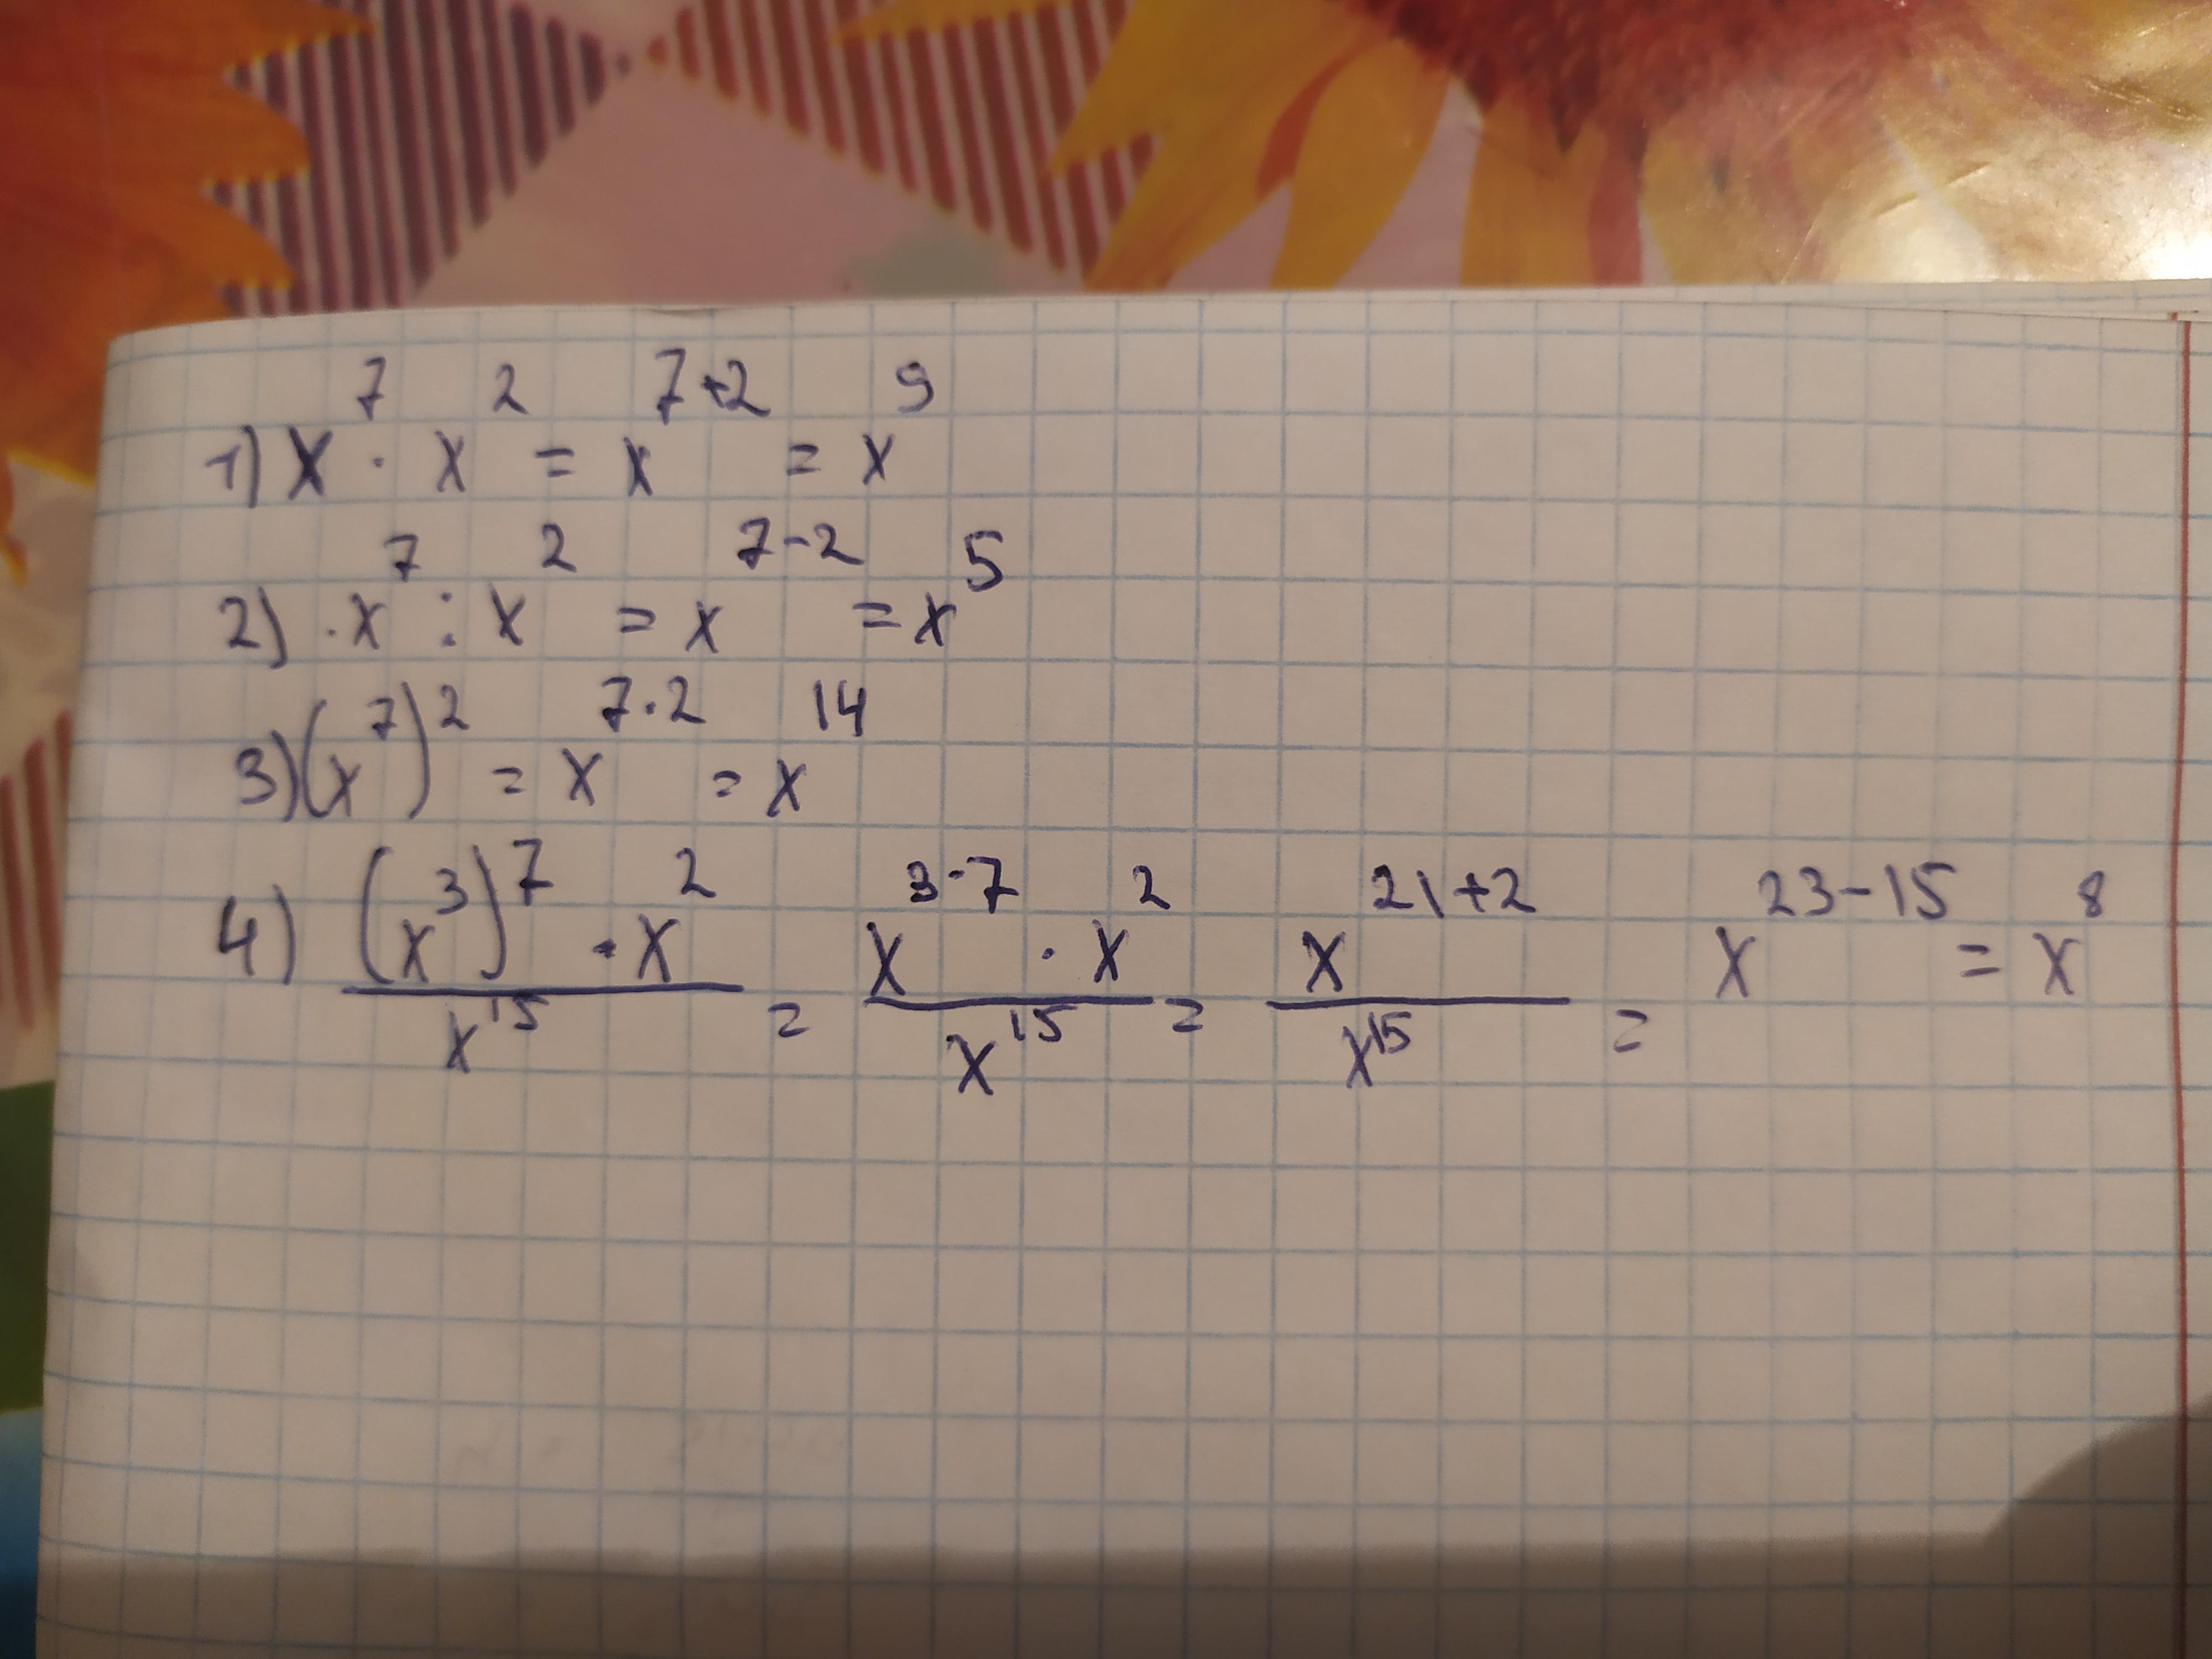 1) x⁷ · x² = x⁷⁺² = x⁹
2) · x⁷ : x² = x⁷⁻² = x⁵
3) (x⁷)² = x⁷·² = x¹⁴
4) (x³)⁷ · x² / x¹⁵ = x³·⁷ · x² / x¹⁵ = x²¹⁺² / x¹⁵ = x²³⁻¹⁵ = x⁸